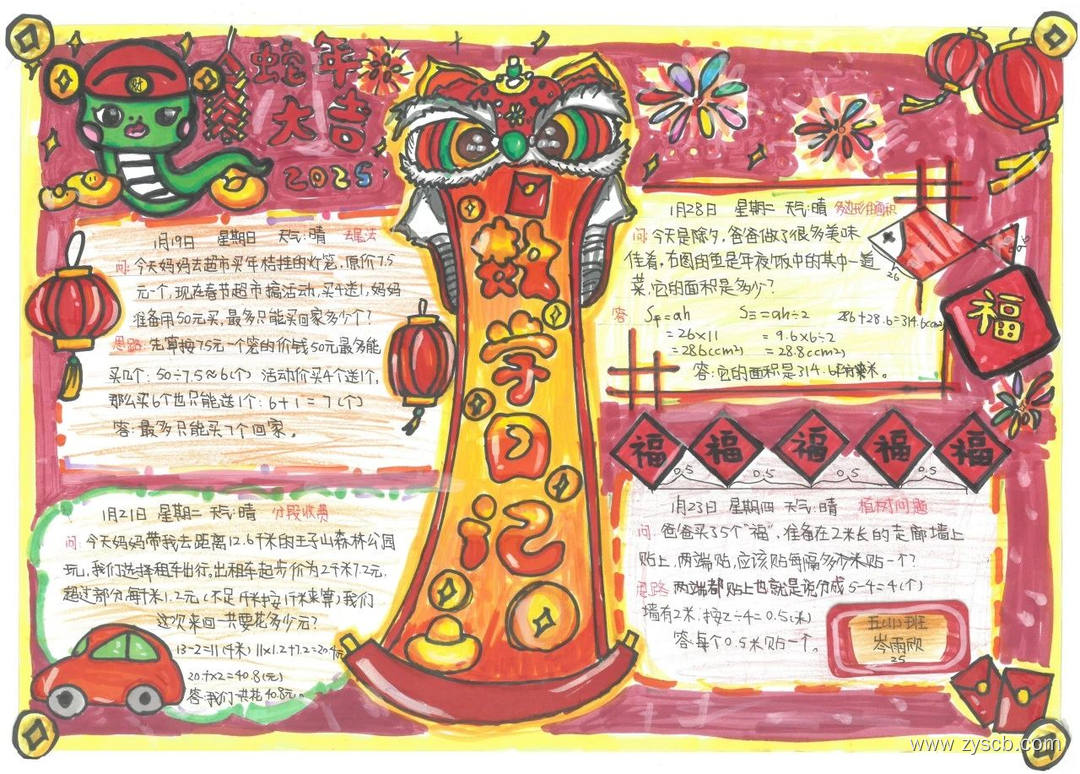 蛇年
大吉
2025
数学日记
1月19日 星期日 天气:晴 去尾法
问:今天妈妈去超市买年桔挂的灯笼,原价7.5
元一个,现在春节超市搞活动,买4送1,妈妈
准备用50元买,最多只能买回家多少个?
思路:先算按7.5元一个笼的价钱50元最多能
买几个:50÷7.5≈6(个) 活动价买4个送1个,
那么买6个也只能送1个:6+1=7(个)
答:最多只能买7个回家。
1月21日 星期二 天气:晴 分段收费
问:今天妈妈带我去距离12.6千米的王子山森林公园
玩,我们选择租车出行。出租车起步价为2千米7.2元,
超过部分每千米1.2元(不足1千米按1千米来算)我们
这次来回一共要花多少元?
13-2=11(千米) 11×1.2+7.2=20.4元
20.4×2=40.8(元)
答:我们一共花40.8元。
1月28日 星期二 天气:晴 多边形面积
问:今天是除夕,爸爸做了很多美味
佳肴,右图的鱼是年夜饭中的其中一道
菜,它的面积是多少?
26
答 S平=ah S三=ah÷2 286+28.8=314.6(cm2)
=26×11 =9.6×6÷2
=286(cm2) =28.8(cm2)
答:它的面积是314.6平方厘米。
福
福 福 福 福 福
0.5 0.5 0.5 0.5
1月23日 星期四 天气:晴 植树问题
问:爸爸买35个"福",准备在2米长的走廊墙上
贴上,两端贴,应该贴每隔多少米贴一个?
思路:两端都贴上也就是说分成5-1=4(个)
墙有2米,按2÷4=0.5(米)
答:每个0.5米贴一个。
五(1)班
岑雨欣
25
www.zyscb.com